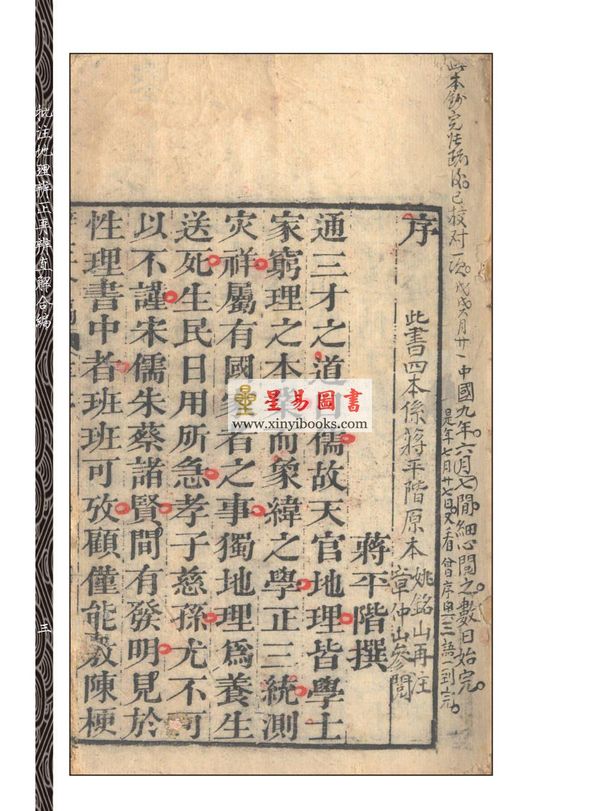 批注地理辨正再辨直解合編
三
此本鈔完
已校对一次
中國九年六月七閒細心閱之數日始完
序
此書四本係蔣平階原本
姚銘山再注
章仲山參閱
蔣平階撰
通三才之道曰儒故天官地理皆學士
家窮理之本業而象緯之學正三統測
災祥屬有國家者之事獨地理爲養生
送死生民日用所急孝子慈孫尤不可
以不謹宋儒朱蔡諸賢間有發明見於
性理書中者班班可攷顧僅能敷陳梗
星易圖書
www.xinyibooks.com